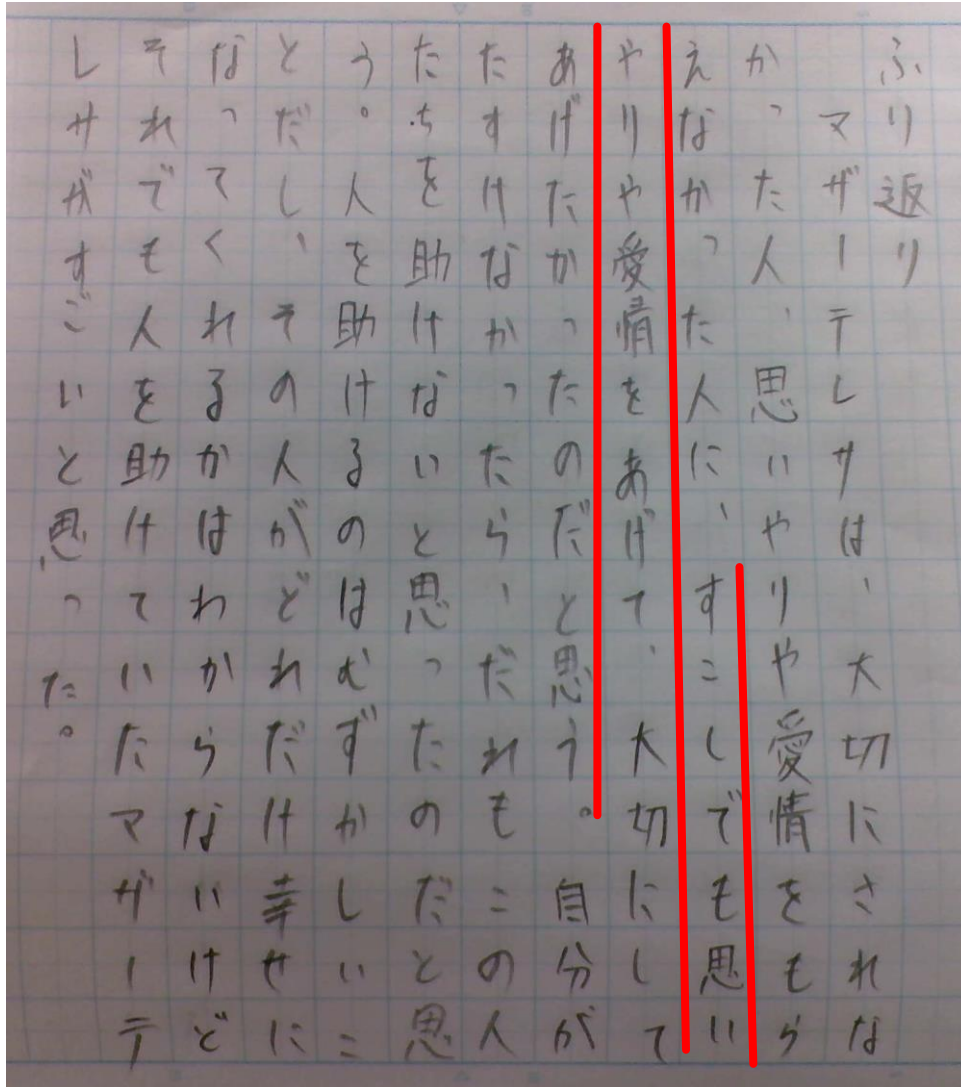 ふり返り
マザーテレサは、大切にされな
かった人、思いやりや愛情をもら
えなかった人に、すこしでも思い
やりや愛情をあげて、大切にして
あげたかったのだと思う。自分が
たすけなかったら、だれもこの人
たちを助けないと思ったのだと思
う。人を助けるのはむずかしいこ
とだし、その人がどれだけ幸せに
なってくれるかはわからないけど
それでも人を助けていたマザーテ
レサがすごいと思った。